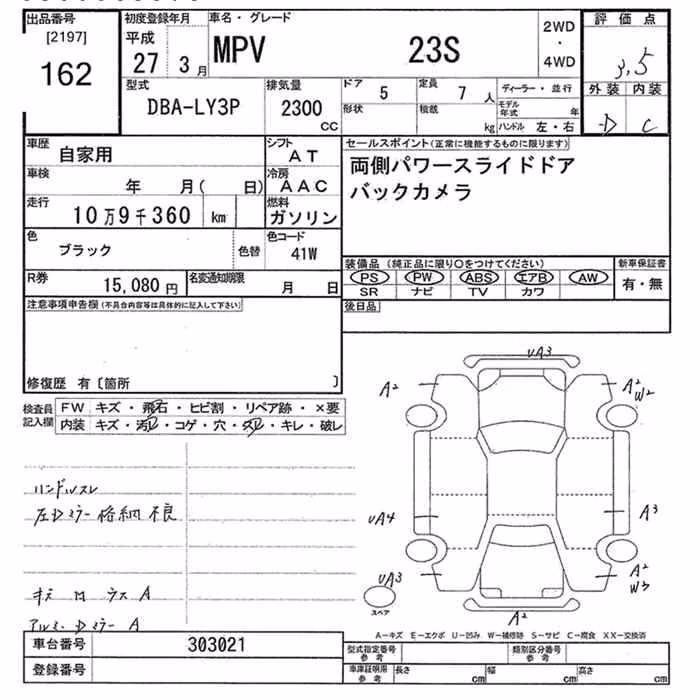 出品番号
[2197]
162
初度登録年月
平成
27 3 月
車名・グレード
MPV 23S
2WD
・
4WD
評価点
3.5
外装 内装
-D C
型式
DBA-LY3P
排気量
2300
CC
ドア
5
定員
7 人
形状
積載
kg
ディーラー・並行
モデル年式 年
ハンドル 左・右
車歴
自家用
シフト
AT
車検
年 月( 日)
冷房
AAC
走行
10万9千360 km
燃料
ガソリン
色
ブラック
色替
色コード
41W
R券
15,080 円
名変通知期限
月 日
セールスポイント(正常に機能するものに限ります)
両側パワースライドドア
バックカメラ
装備品 (純正品に限り○をつけてください)
PS PW ABS エアB AW
SR ナビ TV カワ
新車保証書
有・無
後日品
注意事項申告欄(不具合内容等は具体的に記入して下さい)
修復歴 有〔箇所 〕
検査員
記入欄
FW キズ・飛石・ヒビ割・リペア跡・×要
内装 キズ・汚レ・コゲ・穴・スレ・キレ・破レ
ハンドルスレ
左Dミラー格納不良
キズ
A
アルミ・Dミラー A
UA3
A2
A2
W2
UA4
A3
UA3
スペア
A2
W3
A2
A―キズ E―エクボ U―凹み W―補修跡 S―サビ C―腐食 XX―交換済
車台番号
303021
登録番号
型式指定番号
参考
類別区分番号
参考
車庫証明用
参考
長さ cm 幅 cm 高さ cm